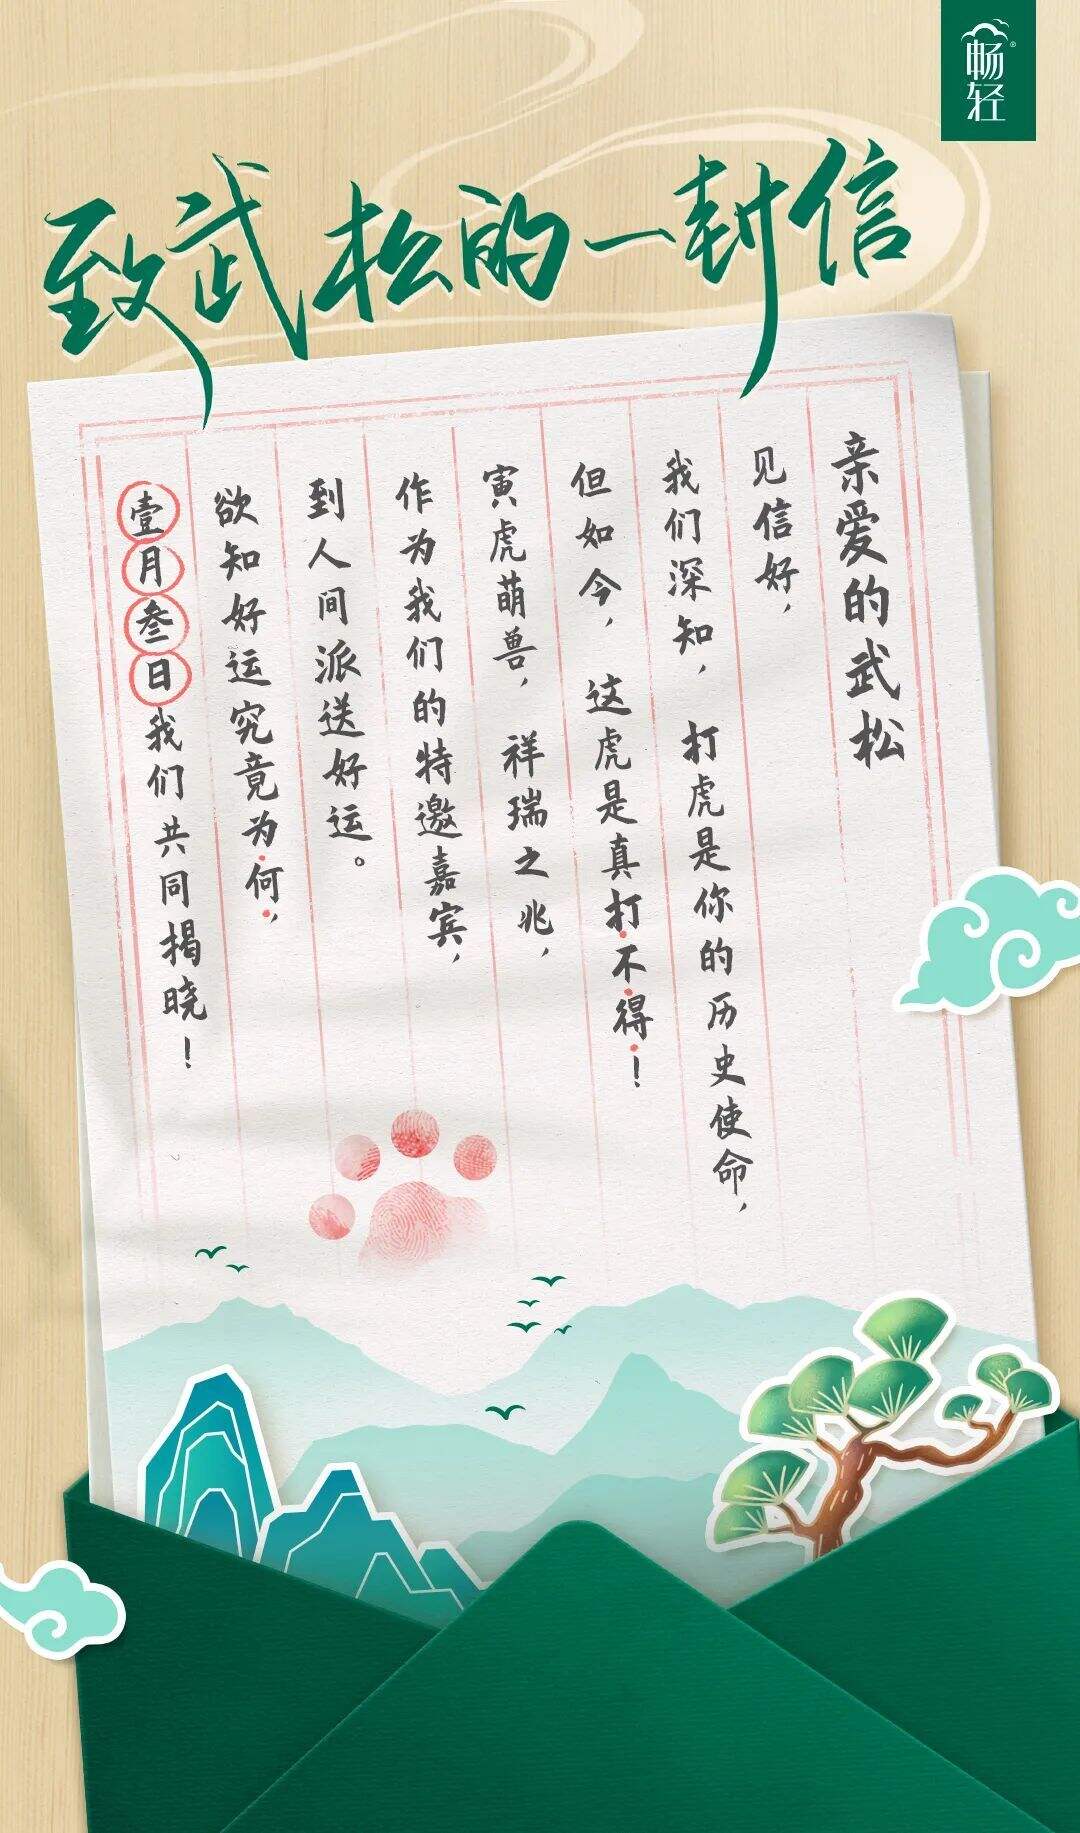 畅轻®
致武松的一封信
亲爱的武松
见信好，
我们深知，打虎是你的历史使命，
但如今，这虎是真打不得！
寅虎萌兽，祥瑞之兆，
作为我们的特邀嘉宾，
到人间派送好运。
欲知好运究竟为何，
壹月叁日我们共同揭晓！